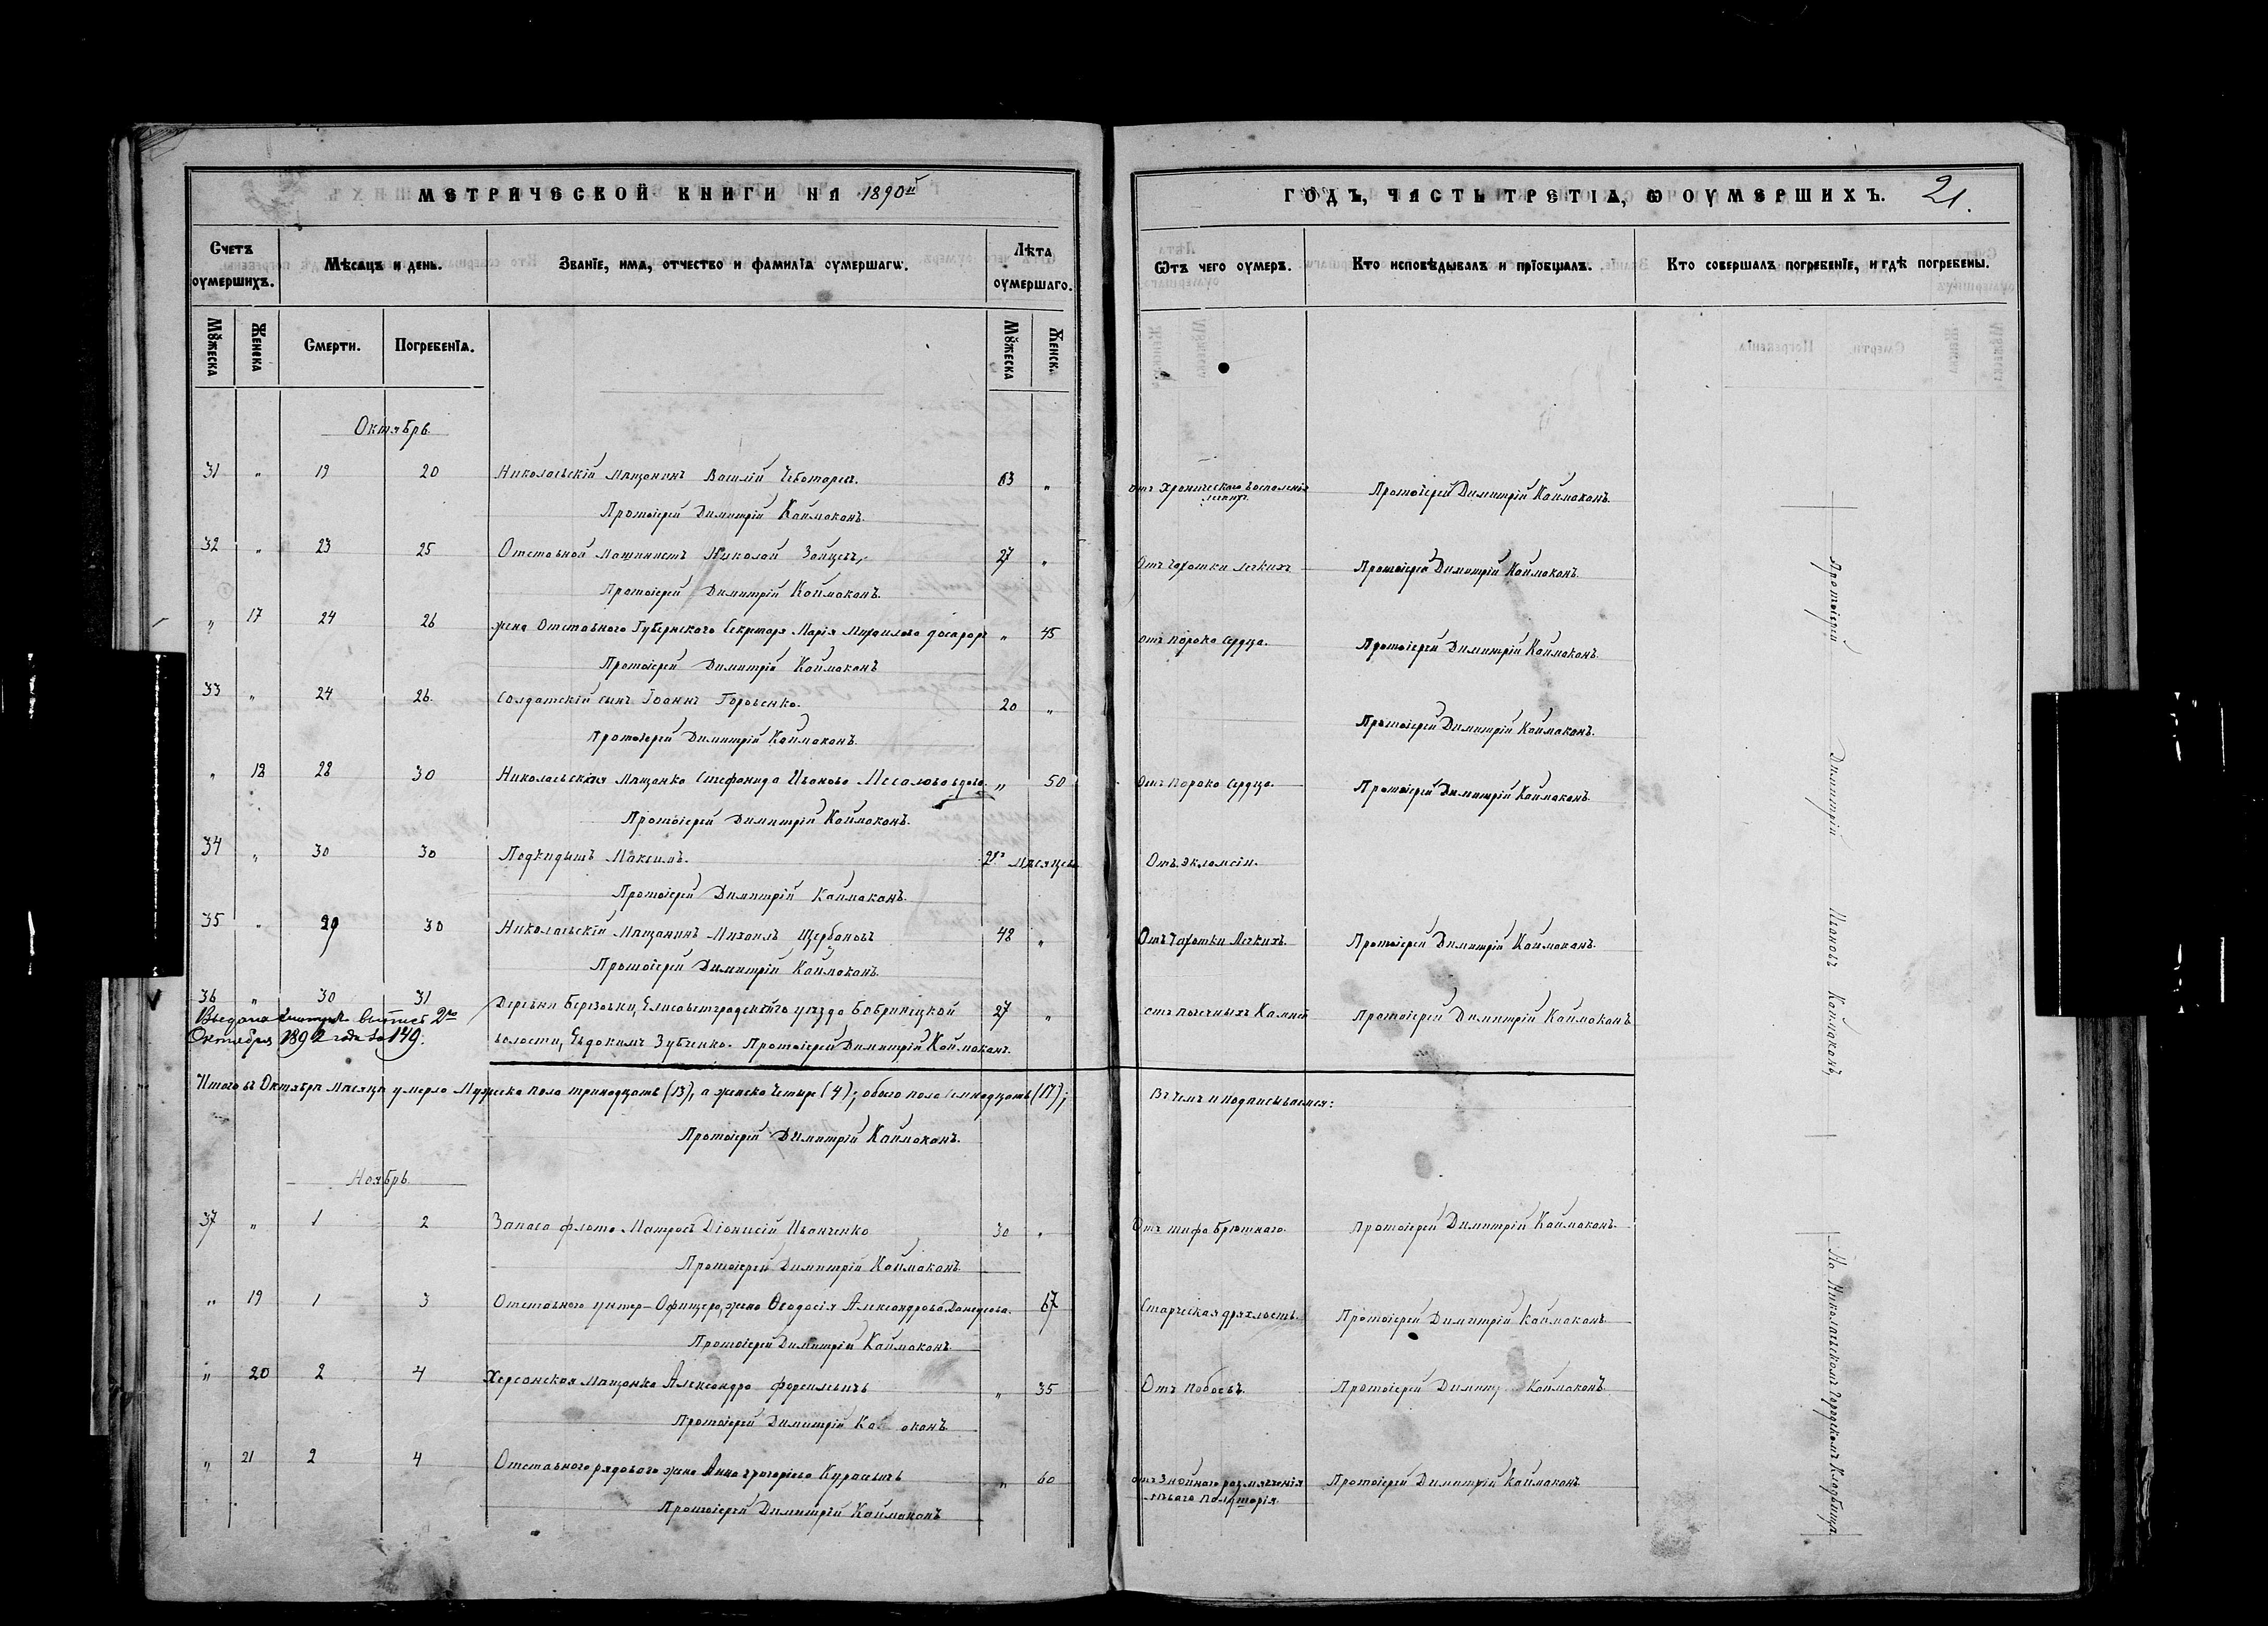 МЕТРИЧЕСКОЙ КНИГИ НА 1890й
ГОДЪ, ЧАСТЬ ТРЕТІѦ, Ѡ ОУМЕРШИХЪ. 21.
Счетъ оумершихъ.
Мѣсѧцъ и день.
Званїе, имѧ, отчество и фамилїѧ оумершагѡ.
Лѣта оумершаго.
Ѿтъ чего оумеръ.
Кто исповѣдывалъ и прїобщалъ.
Кто совершалъ погребенїе, и гдѣ погребены.
Мꙋжеска Женска Смерти. Погребенїѧ. Мꙋжеска Женск.
Октябрь.
31 " 19 20 Николаевскій мѣщанинъ Василій Чеботарев. 63 " отъ хроническаго воспаленія легкихъ Протоіерей Димитрій Каймаканъ.
Протоіерей Димитрій Каймаканъ.
32 " 23 25 Отставной машинистъ Николай Зайцевъ, 27 " Отъ чахотки легкихъ Протоіерей Димитрій Каймаканъ.
Протоіерей Димитрій Каймаканъ.
" 17 24 26 жена Отставного Губернскаго Секретаря Марія Михаилова " 45 отъ порока сердца. Протоіерей Димитрій Каймаканъ.
Протоіерей Димитрій Каймаканъ
33 " 24 26 Солдатскій сынъ Іоаннъ Горвенко. 20 " Протоіерей Димитрій Каймаканъ.
Протоіерей Димитрій Каймаканъ.
" 18 28 30 Николаевская мѣщанка Стефанида Иванова вдова " 50 Отъ порока сердца. Протоіерей Димитрій Каймаканъ.
Протоіерей Димитрій Каймаканъ.
34 " 30 30 Подкидышъ Максимъ. 2хъ мѣсяцевъ Отъ экломсіи.
Протоіерей Димитрій Каймаканъ.
35 " 29 30 Николаевскій мѣщанинъ Михаилъ Щербаковъ 48 " Отъ чахотки легкихъ. Протоіерей Димитрій Каймаканъ.
Протоіерей Димитрій Каймаканъ.
36 " 30 31 Деревни Березовки, Елисаветградскаго уѣзда Бобринецкой 27 " отъ почечныхъ камней Протоіерей Димитрій Каймаканъ
Выдана выпись 2го
Октября 1892 года за 149.
волости, Евдокимъ Зубченко. Протоіерей Димитрій Каймаканъ.
Итого въ Октябрѣ мѣсяцѣ умерло мужска пола тринадцать (13), а женска четыре (4); обоего пола семнадцать (17); Въ чемъ и подписываемся:
Протоіерей Димитрій Каймаканъ.
Ноябрь
37 " 1 2 Запаса флота Матросъ Діонисій Иванченко 30 " Отъ тифа брюшнаго. Протоіерей Димитрій Каймаканъ.
Протоіерей Димитрій Каймаканъ.
" 19 1 3 Отставного унтер-Офицера, жена Ѳеодосія Александрова 67 Старческая дряхлость. Протоіерей Димитрій Каймаканъ
Протоіерей Димитрій Каймаканъ.
" 20 2 4 Херсонская мѣщанка Александра " 35 Отъ побоевъ. Протоіерей Димит Каймаканъ.
Протоіерей Димитрій Ка аканъ.
" 21 2 4 Отставного рядового жена Анна Григорiева Курасевичъ " 60 отъ размягченія полушарія. Протоіерей Димитрій Каймаканъ.
Протоіерей Димитрій Каймаканъ
Протоіерей Димитрій Ивановъ Каймаканъ,
На Николаевскомъ Городскомъ Кладбищѣ.